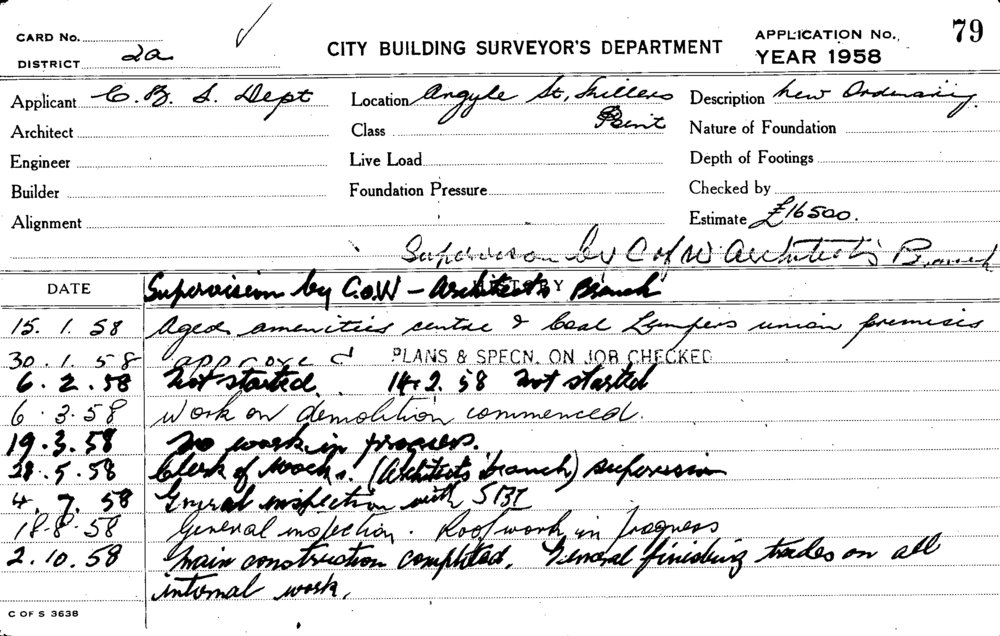 CARD No.
DISTRICT 2a
CITY BUILDING SURVEYOR'S DEPARTMENT
APPLICATION No. 79
YEAR 1958
Applicant C. B. S. Dept
Location Argyle St, Millers Point
Description New Ordinary
Architect
Class
Nature of Foundation
Engineer
Live Load
Depth of Footings
Builder
Foundation Pressure
Checked by
Alignment
Estimate £16500.
Supervision by C of W Architect's Branch
DATE
Supervision by C.o.W - Architects Branch
15. 1. 58 Aged amenities centre & Coal Lumpers union premises
30. 1. 58 approved PLANS & SPECN. ON JOB CHECKED
6. 2. 58 Not started. 14. 2. 58 Not started
6. 3. 58 Work on demolition commenced.
19. 3. 58 No work in progress.
28. 5. 58 Clerk of Works. (Architects branch) supervision
4. 7. 58 General inspection with SBI
18. 8. 58 General inspection. Roof work in progress
2. 10. 58 Main construction completed. General finishing trades on all
internal work.
C OF S 3638